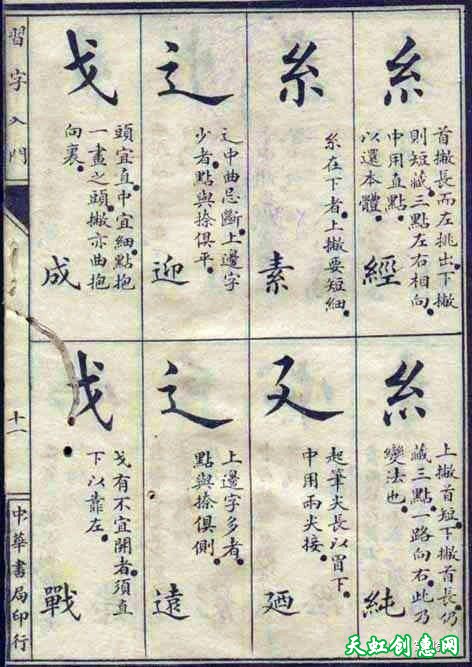 糸
首撇長而左挑出下撇
則短藏三點左右相向
中用直點
以還本體
經
糸
糸在下者上撇要短細
素
辶
辶中曲忌斷上邊字
少者點與捺俱平
迎
戈
頭宜直中宜細點抱
一畫之頭撇亦曲抱
向裏
成
糸
上撇首短下撇首長仍
藏三點一路向右此乃
變法也
純
廴
起筆尖長以冒下
中用兩尖接
廼
辶
上邊字多者
點與捺俱側
遠
戈
戈有不宜開者須直
下以靠左
戰
習字入門
十一
中華書局印行
天虹创意网